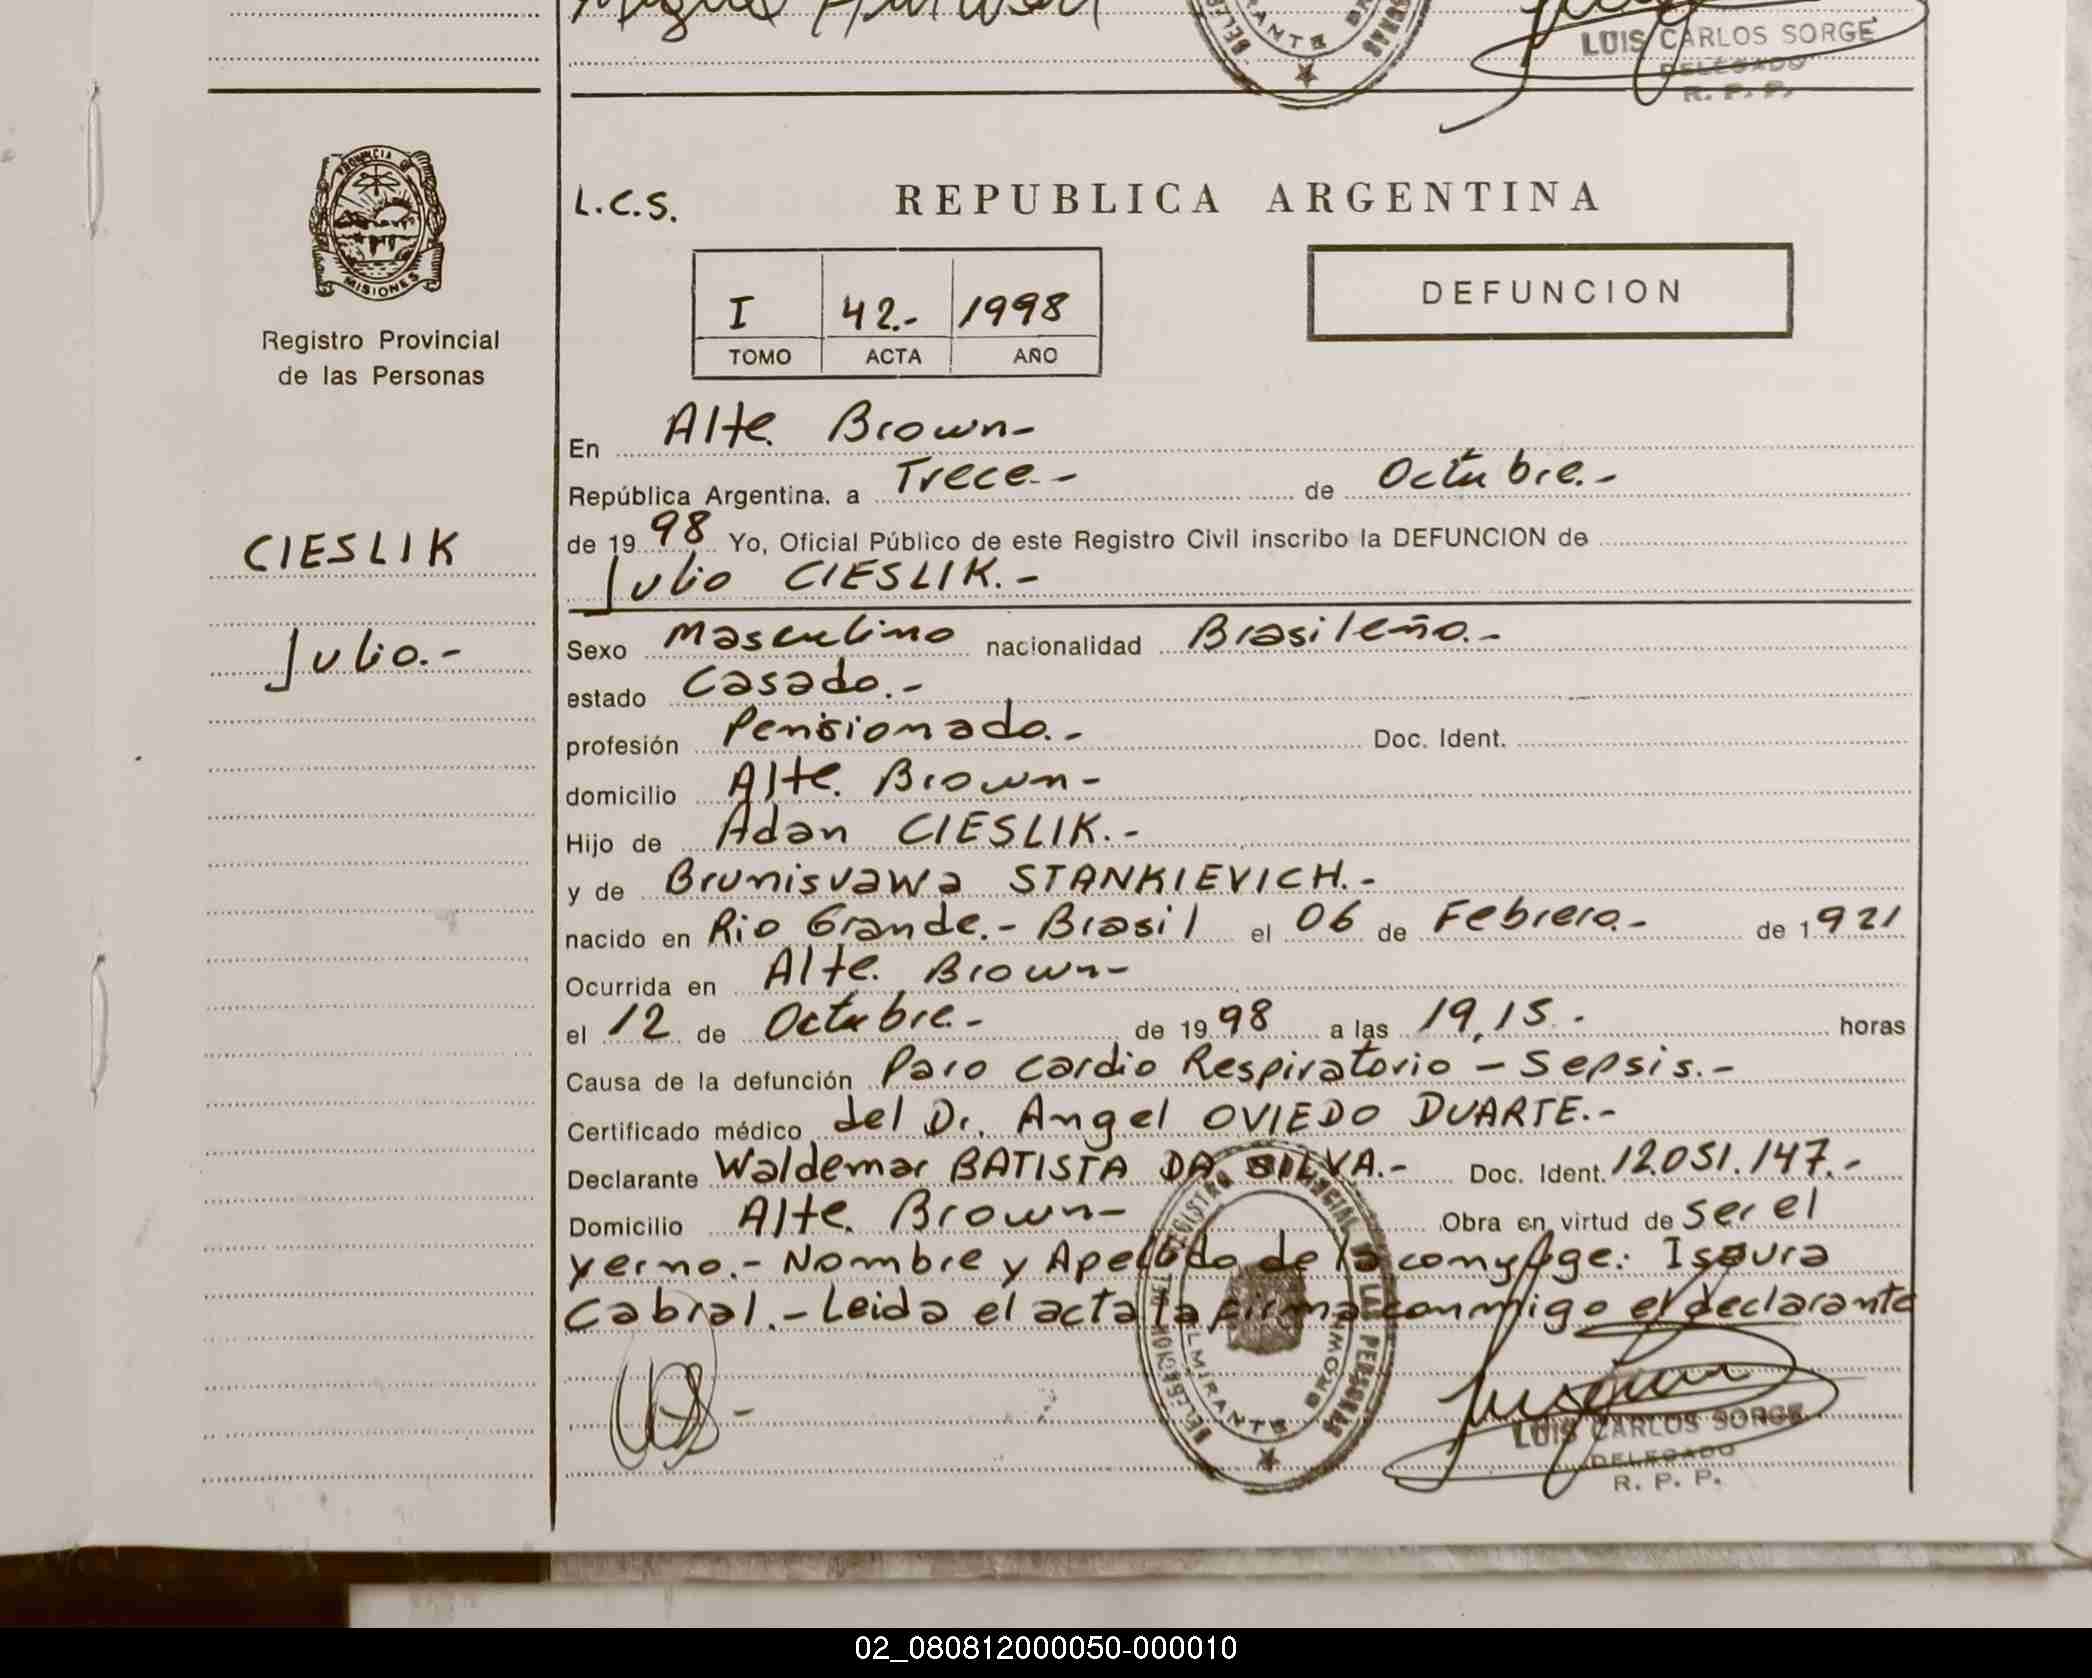 LUIS CARLOS SORGE
DELEGADO
R. P. P.
PROVINCIA DE
MISIONES
Registro Provincial
de las Personas
CIESLIK
Julio.-
L.C.S.
REPUBLICA ARGENTINA
I 42.- 1998
TOMO ACTA AÑO
DEFUNCION
En Alte. Brown-
República Argentina, a Trece.- de Octubre.-
de 1998 Yo, Oficial Público de este Registro Civil inscribo la DEFUNCION de
Julio CIESLIK.-
Sexo Masculino nacionalidad Brasileño.-
estado Casado.-
profesión Pensionado.- Doc. Ident.
domicilio Alte. Brown-
Hijo de Adan CIESLIK.-
y de Brunisvawa STANKIEVICH.-
nacido en Rio Grande.- Brasil el 06 de Febrero.- de 1921
Ocurrida en Alte. Brown-
el 12 de Octubre.- de 1998 a las 19,15.- horas
Causa de la defunción Paro Cardio Respiratorio - Sepsis.-
Certificado médico del Dr. Angel OVIEDO DUARTE.-
Declarante Waldemar BATISTA DA SILVA.- Doc. Ident. 12.051.147.-
Domicilio Alte. Brown- Obra en virtud de ser el
yerno.- Nombre y Apellido de la conyuge: Isaura
Cabral.- Leida el acta la firma conmigo el declarante
REGISTRO PROVINCIAL DE LAS PERSONAS
ALMIRANTE BROWN
LUIS CARLOS SORGE
DELEGADO
R. P. P.
02_080812000050-000010